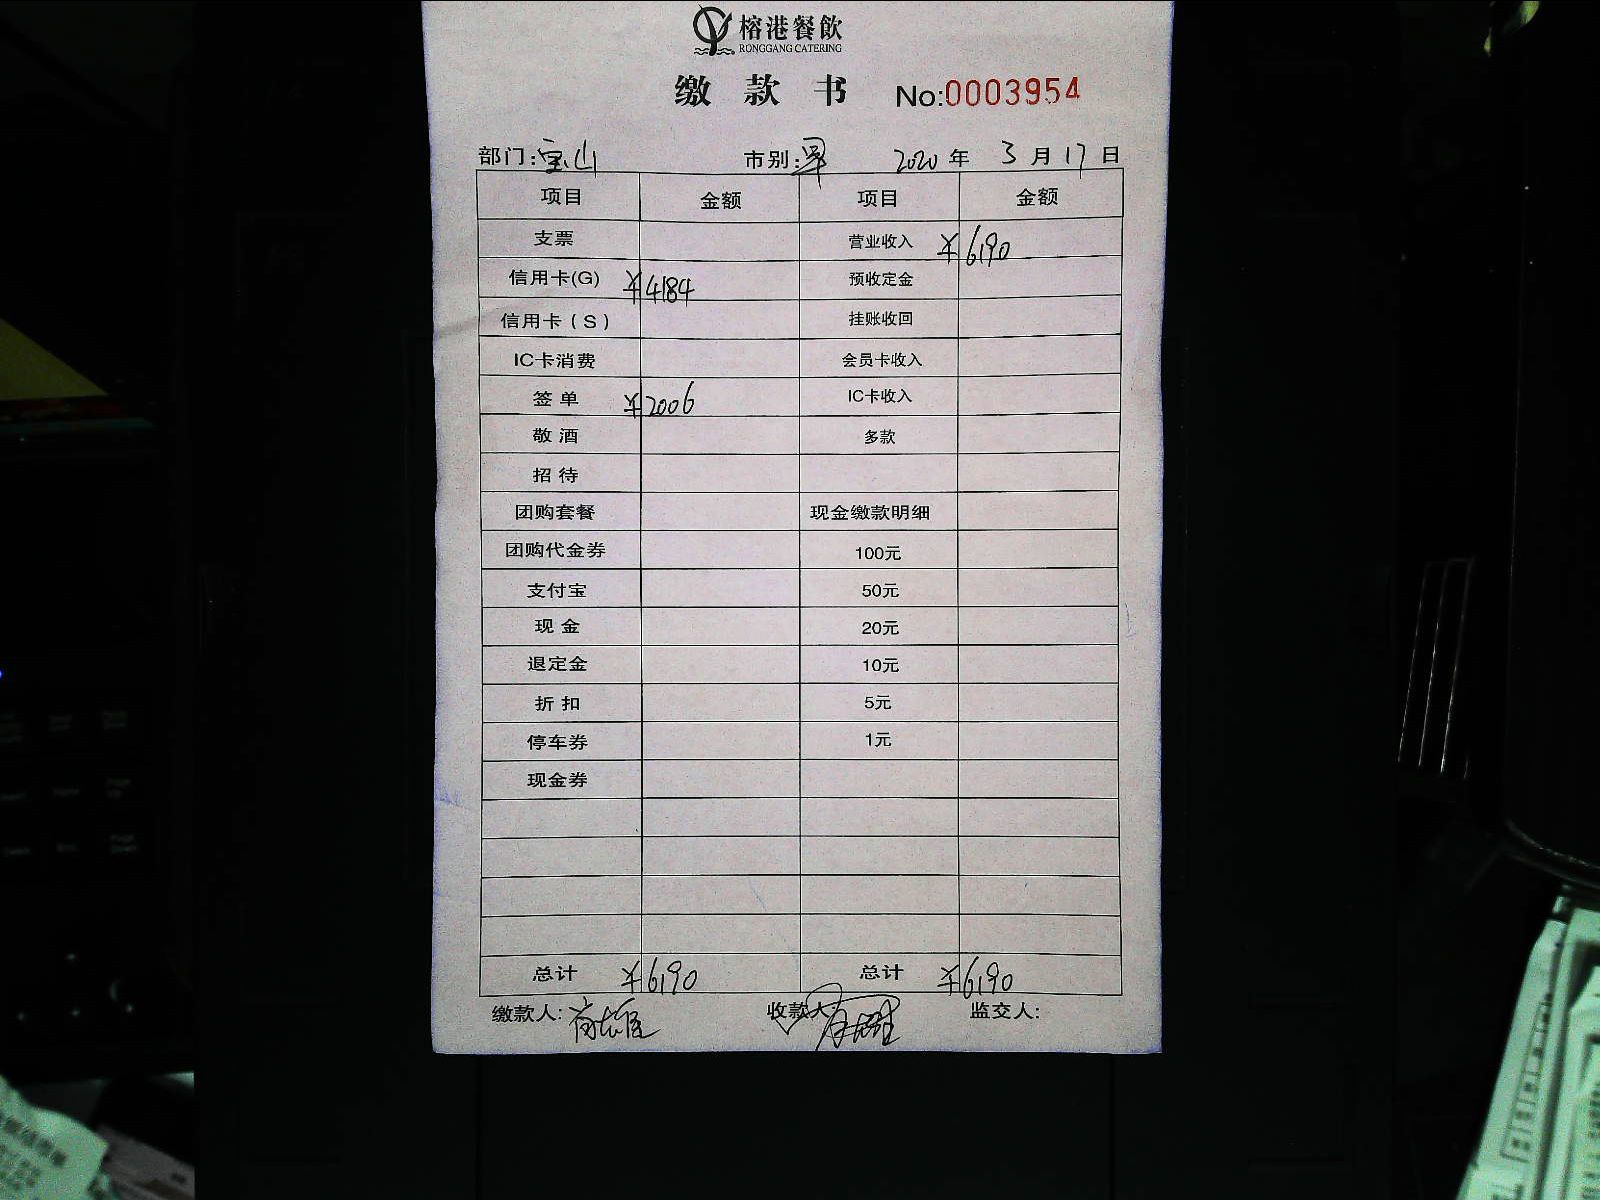 榕港餐飲
RONGGANG CATERING
缴款书 No:0003954
部门:宝山 市别: 2020年3月17日
项目 金额 项目 金额
支票 营业收入 ¥6190
信用卡(G) ¥4184 预收定金
信用卡(S) 挂账收回
IC卡消费 会员卡收入
签单 ¥2006 IC卡收入
敬酒 多款
招待
团购套餐 现金缴款明细
团购代金券 100元
支付宝 50元
现金 20元
退定金 10元
折扣 5元
停车券 1元
现金券
总计 ¥6190 总计 ¥6190
缴款人: 收款人 监交人: